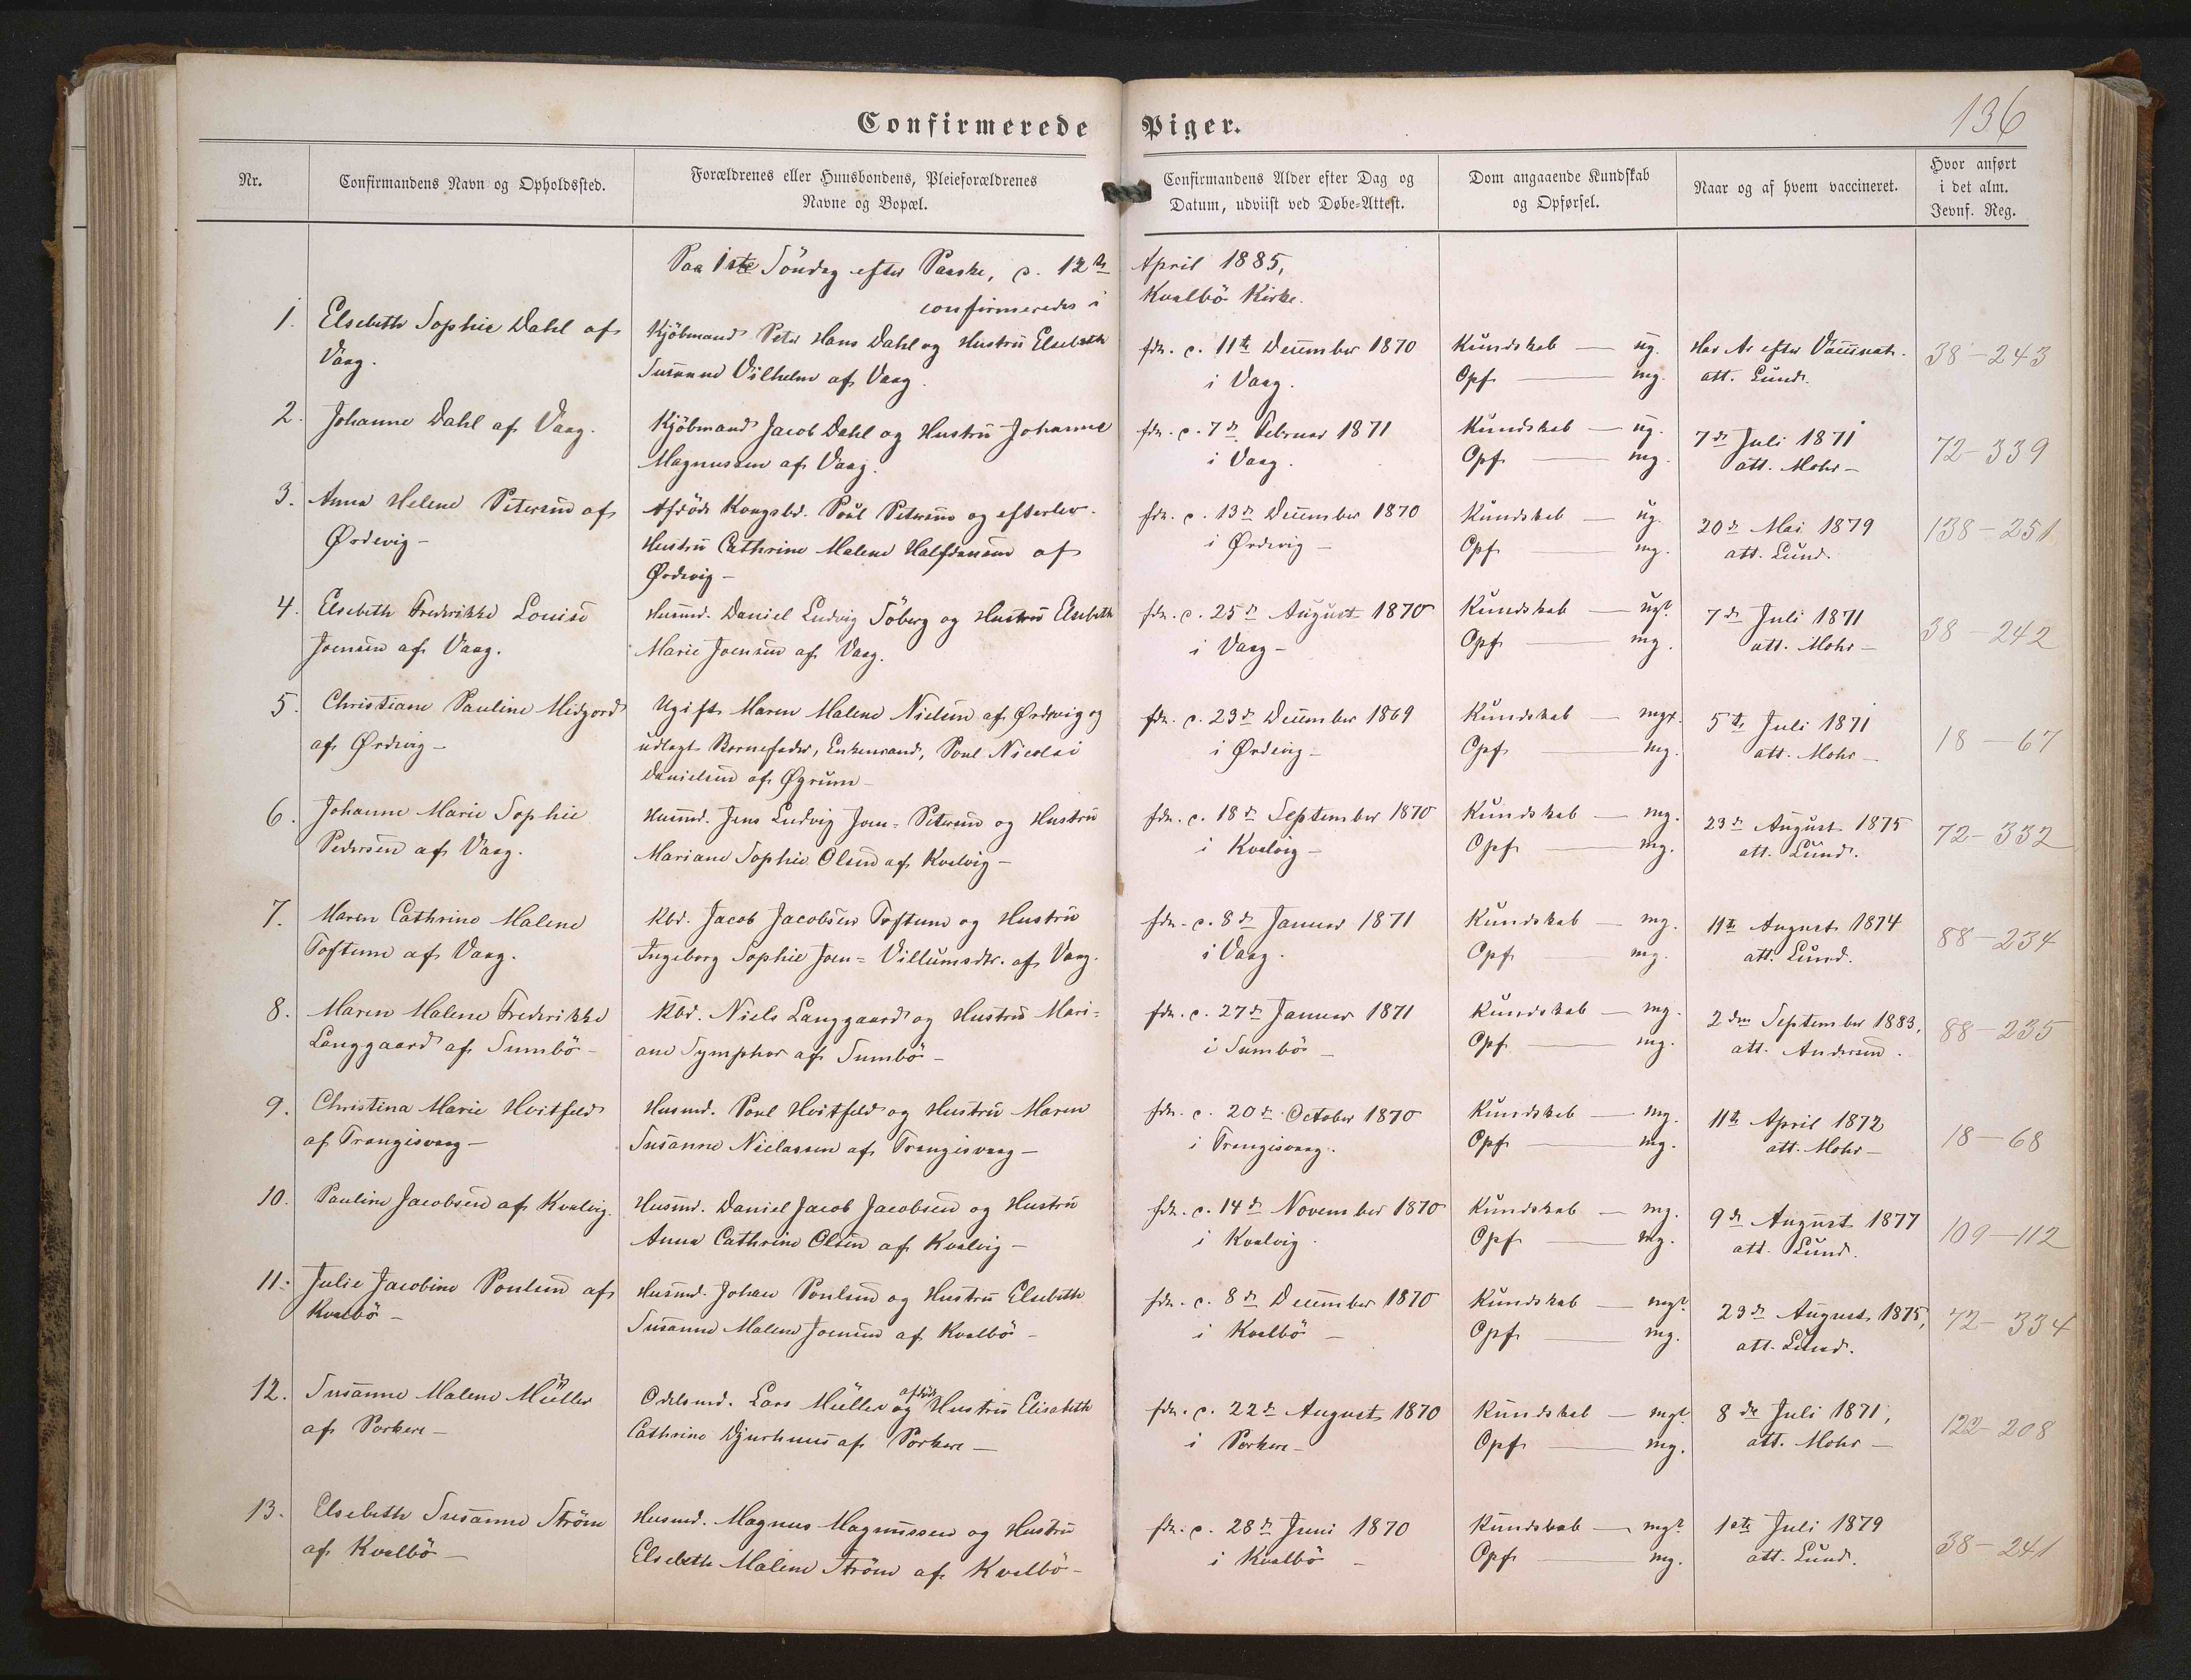 Confirmerede Piger.
136
Nr.
Confirmandens Navn og Opholdssted.
Forældrenes eller Huusbondens, Pleieforældrenes
Navne og Bopæl.
Confirmandens Alder efter Dag og
Datum, udviist ved Døbe-Attest.
Dom angaaende Kundskab
og Opførsel.
Naar og af hvem vaccineret.
Hvor anført
i det alm.
Jevnf. Reg.
Paa 1ste Söndag efter Paaske, d. 12te April 1885,
confirmeredes i Kvalbö Kirke.
1. Elsebeth Sophie Dahl af
Vaag.
Kjöbmand Peter Hans Dahl og Hustru Elsebeth
Susanne Vilhelm af Vaag.
fdt. d. 11te December 1870
i Vaag.
Kundskab — ug.
Opf. — mg.
Har Ar efter Vaccinat.
att. Lund.
38-243
2. Johanne Dahl af Vaag.
Kjöbmand Jacob Dahl og Hustru Johanne
Magnussen af Vaag.
fdt. d. 7de Februar 1871
i Vaag.
Kundskab — ug.
Opf. — mg.
7de Juli 1871
att. Mohr —
72-339
3. Anna Helene Petersen af
Ørdevig —
Afdöde Kongsbd. Poul Petersen og efterlev.
Hustru Cathrine Malene Halfdansen af
Ørdevig —
fdt. d. 13de December 1870
i Ørdevig —
Kundskab — ug.
Opf. — mg.
20de Mai 1879
att. Lund.
138-251
4. Elsebeth Frederikke Louise
Joensen af Vaag.
Husmd. Daniel Ludvig Söberg og Hustru Elsebeth
Marie Joensen af Vaag.
fdt. d. 25de August 1870
i Vaag —
Kundskab — ug?
Opf. — mg.
7de Juli 1871
att. Mohr —
38-242
5. Christiane Pauline Midgord
af Ørdevig —
Ugift Maren Malene Nielsen af Ørdevig og
udlagt Barnefader, Enkemand, Poul Nicolai
Danielsen af Øgrum —
fdt. d. 23de December 1869
i Ørdevig —
Kundskab — mg+.
Opf. — mg.
5te Juli 1871
att. Mohr —
18-67
6. Johanne Marie Sophie
Pedersen af Vaag.
Husmd. Jens Ludvig Joen-Petersen og Hustru
Mariane Sophie Olsen af Kvalvig —
fdt. d. 18de September 1870
i Kvalvig —
Kundskab — mg.
Opf. — mg.
23de August 1875
att. Lund.
72-332
7. Maren Cathrine Malene
Toftum af Vaag.
Kbd. Jacob Jacobsen Toftum og Hustru
Ingeborg Sophie Joen-Villumsdtr. af Vaag.
fdt. d. 8de Januar 1871
i Vaag.
Kundskab — mg.
Opf. — mg.
11te August 1874
att. Lund.
88-234
8. Maren Malene Frederikke
Langgaard af Sumbö —
Kbd. Niels Langgaard og Hustru Mari-
ane Symphor af Sumbö —
fdt. d. 27de Januar 1871
i Sumbö —
Kundskab — mg.
Opf. — mg.
2den September 1883,
att. Andersen.
88-235
9. Christina Marie Hvitfeld
af Trangisvaag —
Husmd. Poul Hvitfeld og Hustru Maren
Susanne Niclassen af Trangisvaag —
fdt. d. 20de October 1870
i Trangisvaag.
Kundskab — mg.
Opf. — mg.
11te April 1872
att. Mohr —
18-68
10. Pauline Jacobsen af Kvalvig.
Husmd. Daniel Jacob Jacobsen og Hustru
Anna Cathrine Olsen af Kvalvig —
fdt. d. 14de November 1870
i Kvalvig.
Kundskab — mg.
Opf. — mg.
9de August 1877
att. Lund.
109-112
11. Julie Jacobine Poulsen af
Kvalbö —
Husmd. Johan Poulsen og Hustru Elsebeth
Susanne Malene Joensen af Kvalbö —
fdt. d. 8de December 1870
i Kvalbö —
Kundskab — mg?
Opf. — mg.
23de August 1875,
att. Lund.
72-334
12. Susanne Malene Müller
af Porkere —
Odelsmd. Lars Müller og afdöde Hustru Elisabeth
Cathrine Djurhuus af Porkere —
fdt. d. 22de August 1870
i Porkere —
Kundskab — mg?
Opf. — mg.
8de Juli 1871,
att. Mohr —
122-208
13. Elsebeth Susanne Ström
af Kvalbö —
Husmd. Magnus Magnussen og Hustru
Elsebeth Malene Ström af Kvalbö —
fdt. d. 28de Juni 1870
i Kvalbö —
Kundskab — mg?
Opf. — mg.
1ste Juli 1879
att. Lund.
38-241